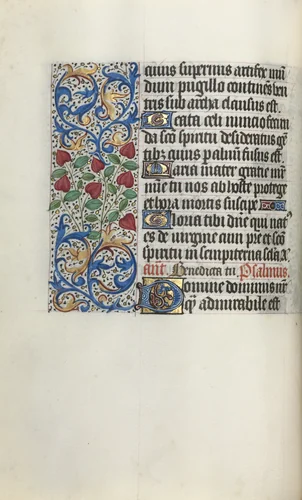 cuius supernus artifex mū
dum pugillo continēs ven
tris sub archa clausus est.
Beata celi nuncio fecun
da sc̄o spiritu desideratus gē
tibꝫ cuius p aluū fusus est.
Maria mater gratie mr̄
mīe tu nos ab hoste protege
et hora mortis suscipe
Gloria tibi dn̄e qui nat᾽
es de virgine cum pr̄e et sc̄o
spiritu in sempiterna secla. a
ant. Benedicta tu. Psalmus.
Domine dominus nr̄
qͣ admirabile est